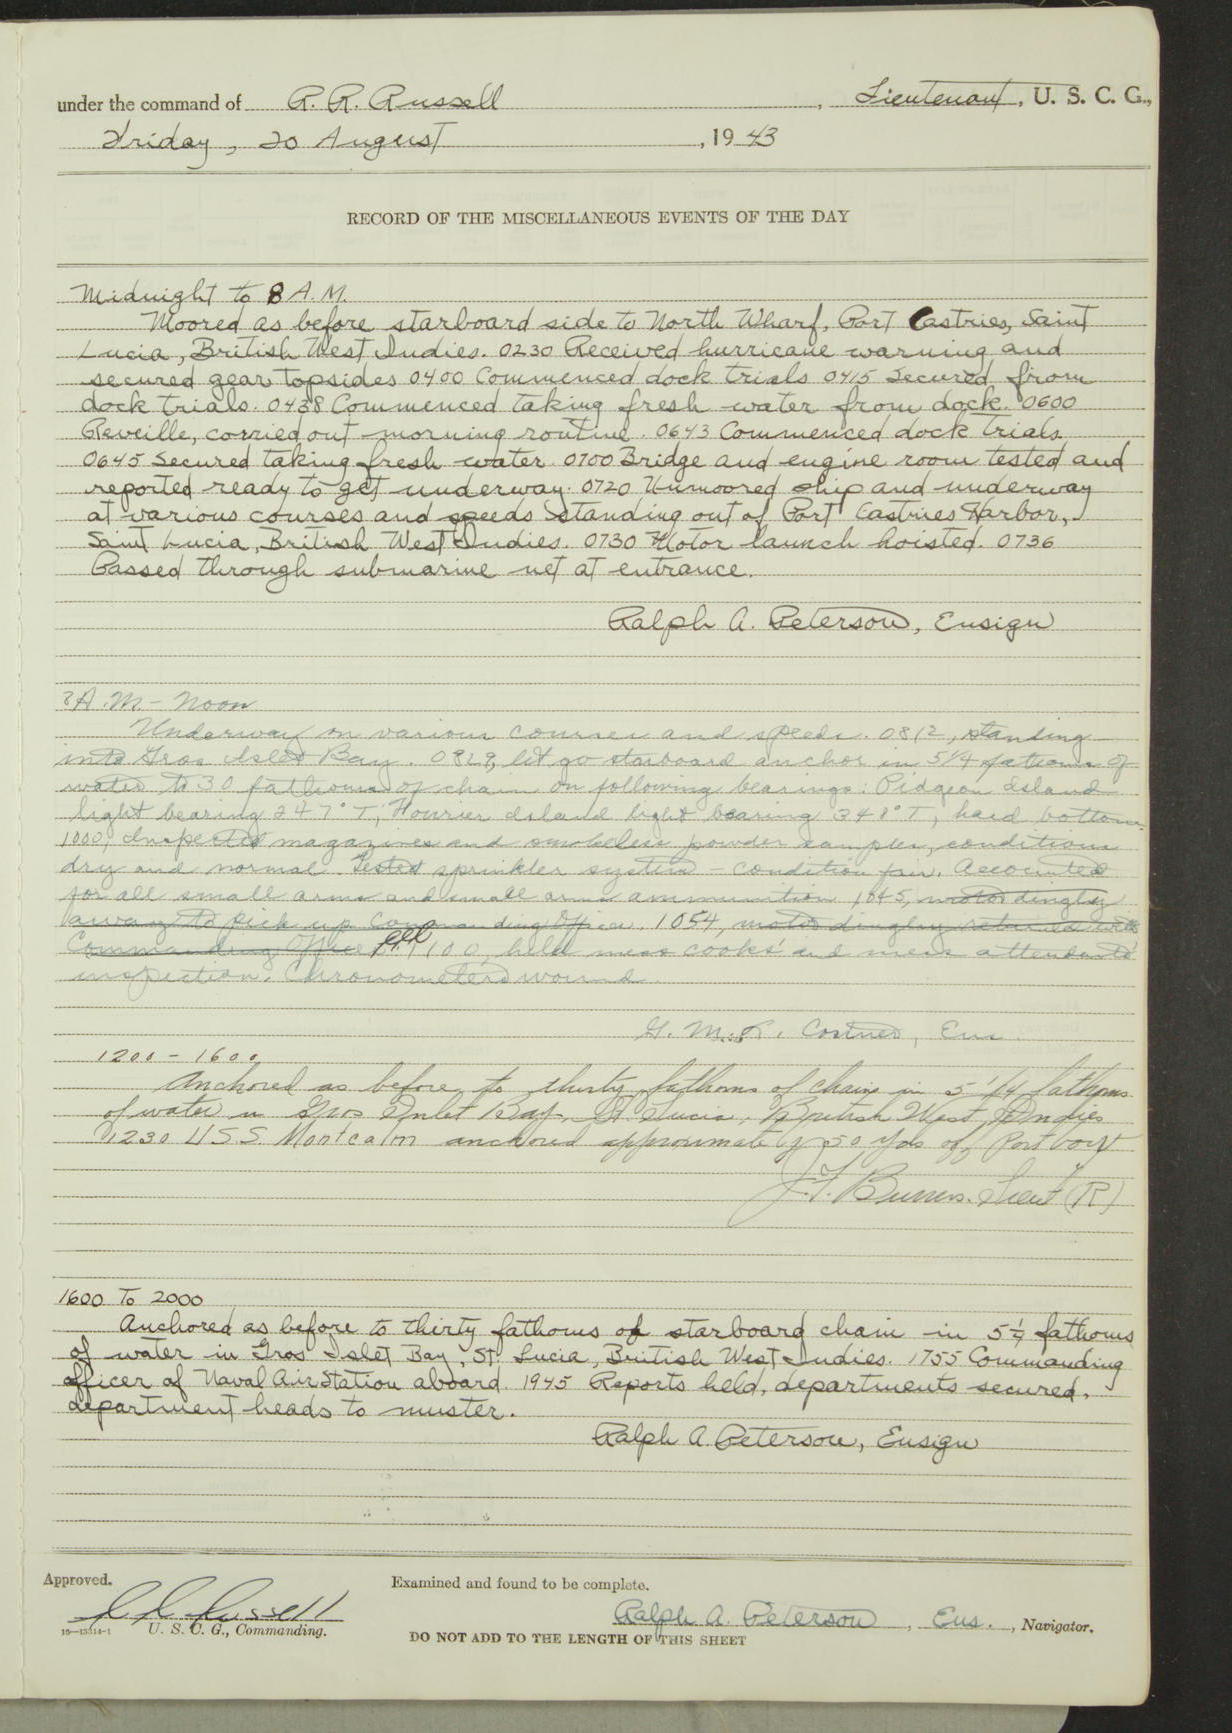 under the command of R. R. Russell, Lieutenant, U. S. C. G.,
Friday, 20 August, 1943
RECORD OF THE MISCELLANEOUS EVENTS OF THE DAY
Midnight to 8 A.M.
Moored as before starboard side to North Wharf, Port Castries, Saint
Lucia, British West Indies. 0230 Received hurricane warning and
secured gear topsides 0400 Commenced dock trials 0415 Secured from
dock trials. 0438 Commenced taking fresh water from dock. 0600
Reveille, carried out morning routine. 0643 Commenced dock trials
0645 Secured taking fresh water. 0700 Bridge and engine room tested and
reported ready to get underway. 0720 Unmoored ship and underway
at various courses and speeds standing out of Port Castries Harbor,
Saint Lucia, British West Indies. 0730 Motor launch hoisted. 0736
Passed through submarine net at entrance.
Ralph A. Peterson, Ensign
8 A.M. - Noon
Underway on various courses and speeds. 0812, standing
into Gros Islet Bay. 0829, let go starboard anchor in 5 1/4 fathoms of
water to 30 fathoms of chain on following bearings: Pidgeon Island
light bearing 247° T, Fourier Island light bearing 348° T, hard bottom.
1000, Inspected magazines and smokeless powder samples, conditions
dry and normal. Tested sprinkler system - condition fair. Accounted
for all small arms and small arms ammunition. 1045, motor dinghy
away to pick up Commanding Officer. 1054, motor dinghy returned with
Commanding Officer. 1100, held mess cooks' and mess attendants'
inspection. Chronometers wound.
G. M. Conner, Ens.
1200 - 1600
Anchored as before to thirty fathoms of chain in 5 1/4 fathoms
of water in Gros Inlet Bay, St. Lucia, British West Indies
1230 U.S.S. Montcalm anchored approximately 50 yds off Port bow
J. F. Lieut (R)
1600 To 2000
Anchored as before to thirty fathoms of starboard chain in 5 1/4 fathoms
of water in Gros Islet Bay, St. Lucia, British West Indies. 1755 Commanding
officer of Naval Air Station aboard. 1945 Reports held, departments secured,
department heads to muster.
Ralph A. Peterson, Ensign
Approved.
Examined and found to be complete.
R R Russell
Ralph A. Peterson, Ens., Navigator.
U. S. C. G., Commanding.
DO NOT ADD TO THE LENGTH OF THIS SHEET